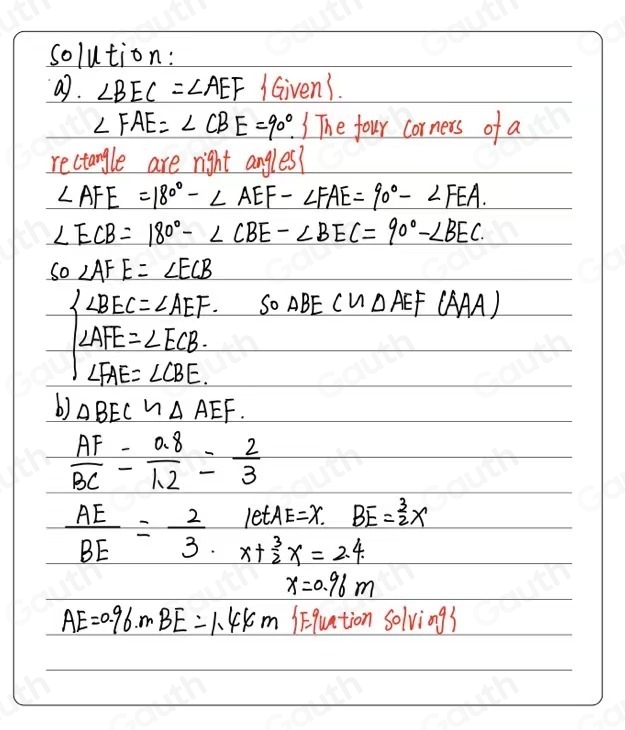 Solution:
a). ∠BEC = ∠AEF {Given}.
∠FAE = ∠CBE = 90°. {The four corners of a
rectangle are right angles}
∠AFE = 180° - ∠AEF - ∠FAE = 90° - ∠FEA.
∠ECB = 180° - ∠CBE - ∠BEC = 90° - ∠BEC.
so ∠AFE = ∠ECB
{∠BEC = ∠AEF. so △BEC ∽ △AEF (AAA)
∠AFE = ∠ECB.
∠FAE = ∠CBE.
b) △BEC ∽ △AEF.
AF/BC = 0.8/1.2 = 2/3
AE/BE = 2/3. let AE = x. BE = 3/2 x
x + 3/2 x = 2.4.
x = 0.96 m
AE = 0.96.m BE = 1.44 m {Equation solving}